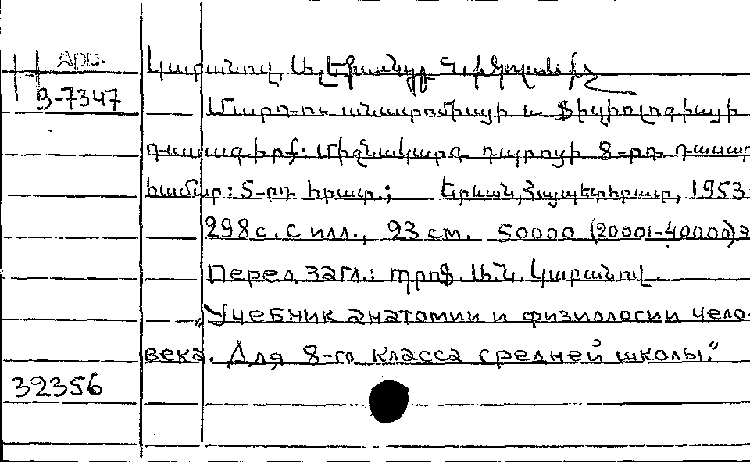 Арм.
В-7347
Կաբանով, Ալեքսանդր Նիկոլաևիչ
Մարդու անատոմիայի և ֆիզիոլոգիայի
դասագիրք: Միջնակարգ դպրոցի 8-րդ դասար
համար: 5-րդ հրատ.; Երևան, Հայպետհրատ, 1953
298 с. с илл., 23 см. 50000 (20001-40000) э
Перед загл.: պրոֆ. Ա.Ն. Կաբանով.
„Учебник анатомии и физиологии чело-
века. Для 8-го класса средней школы."
32356